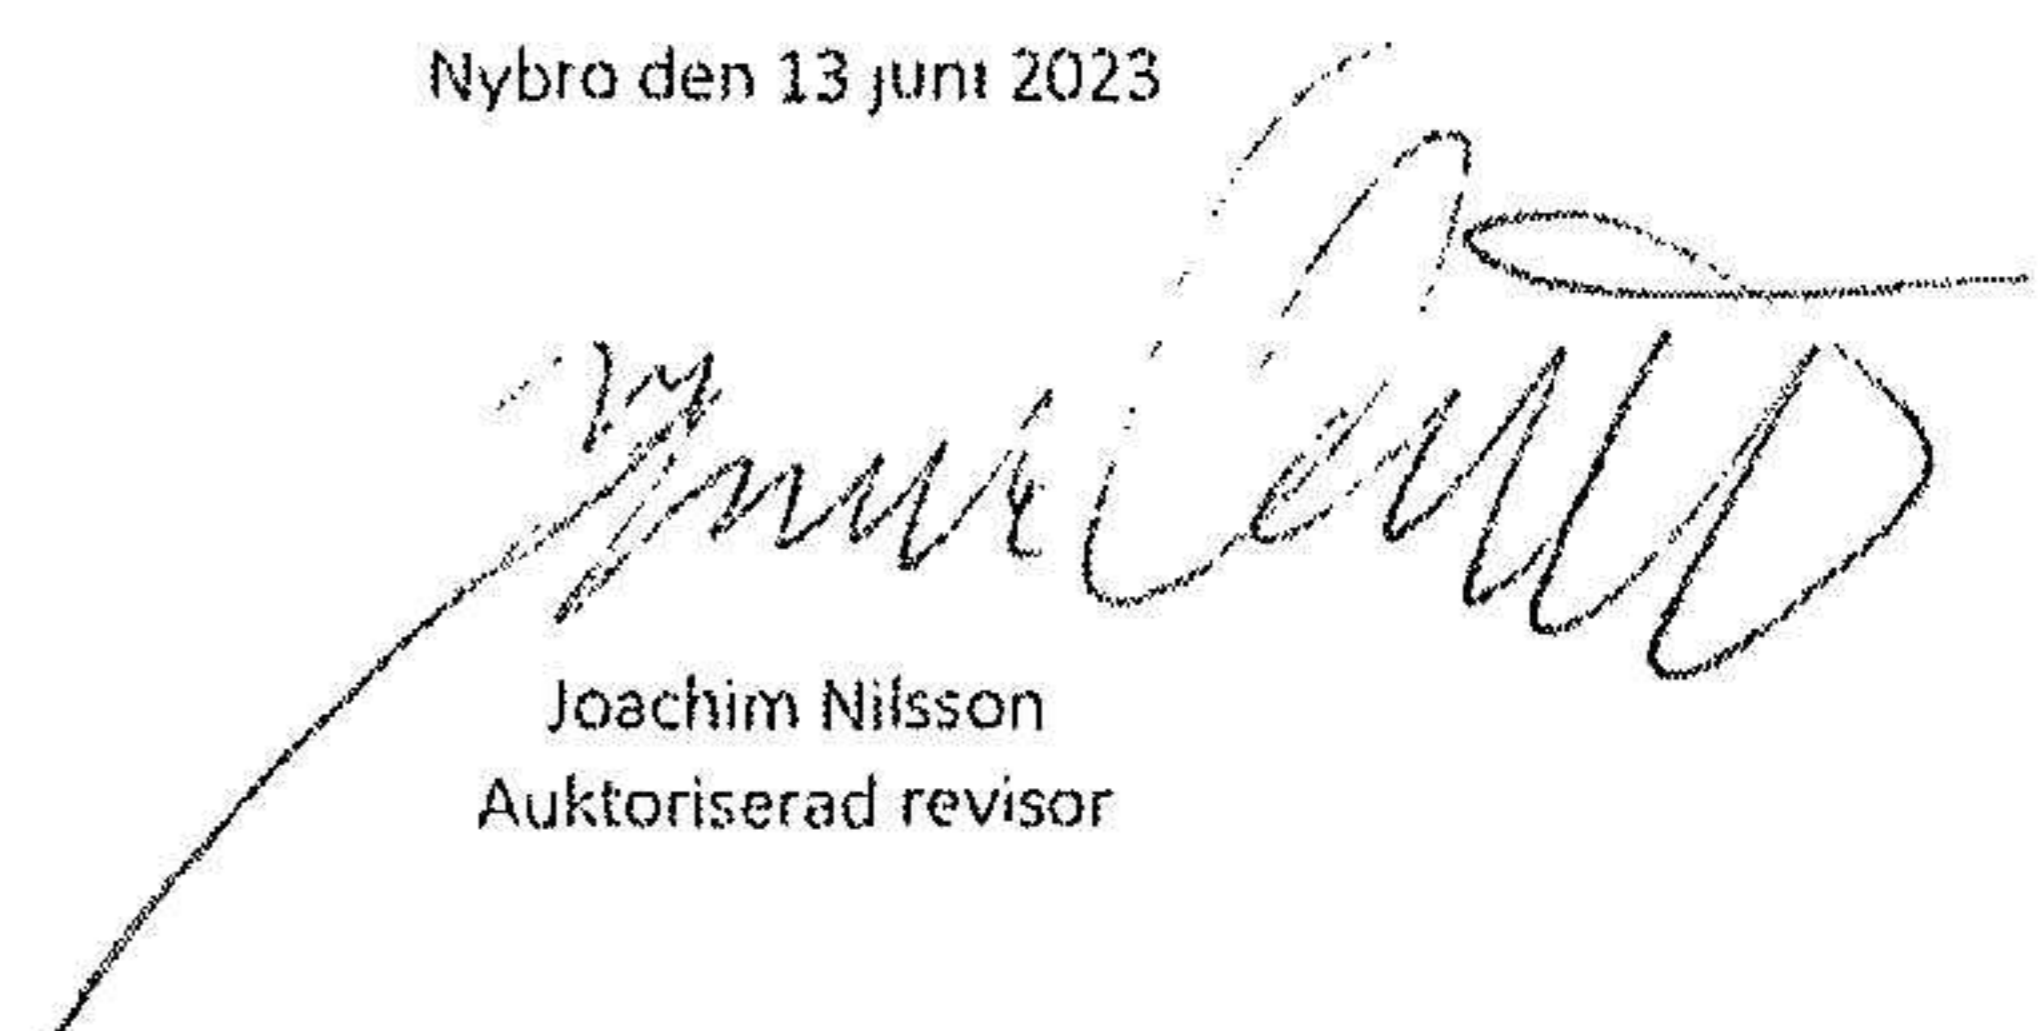 Nybro den 13 juni 2023
Joachim Nilsson
Auktoriserad revisor